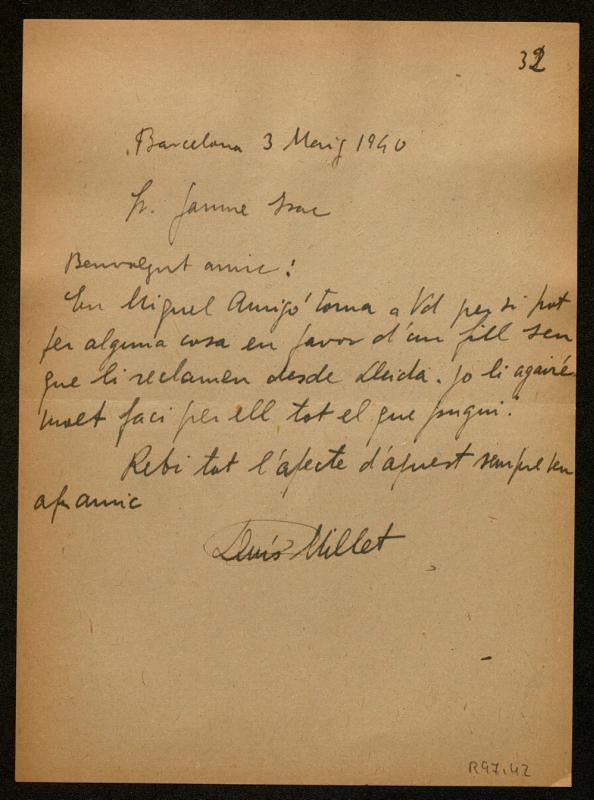 32
Barcelona 3 Maig 1940
Sr. Jaume Isac
Benvolgut amic:
En Miquel Amigó torna a Vd per si pot
fer alguna cosa en favor d'un fill seu
que li reclamen desde Lleida. Jo li agrairé
molt faci per ell tot el que pugui.
Rebi tot l'afecte d'aquest sempre seu
afm amic
Lluís Millet
R97.42